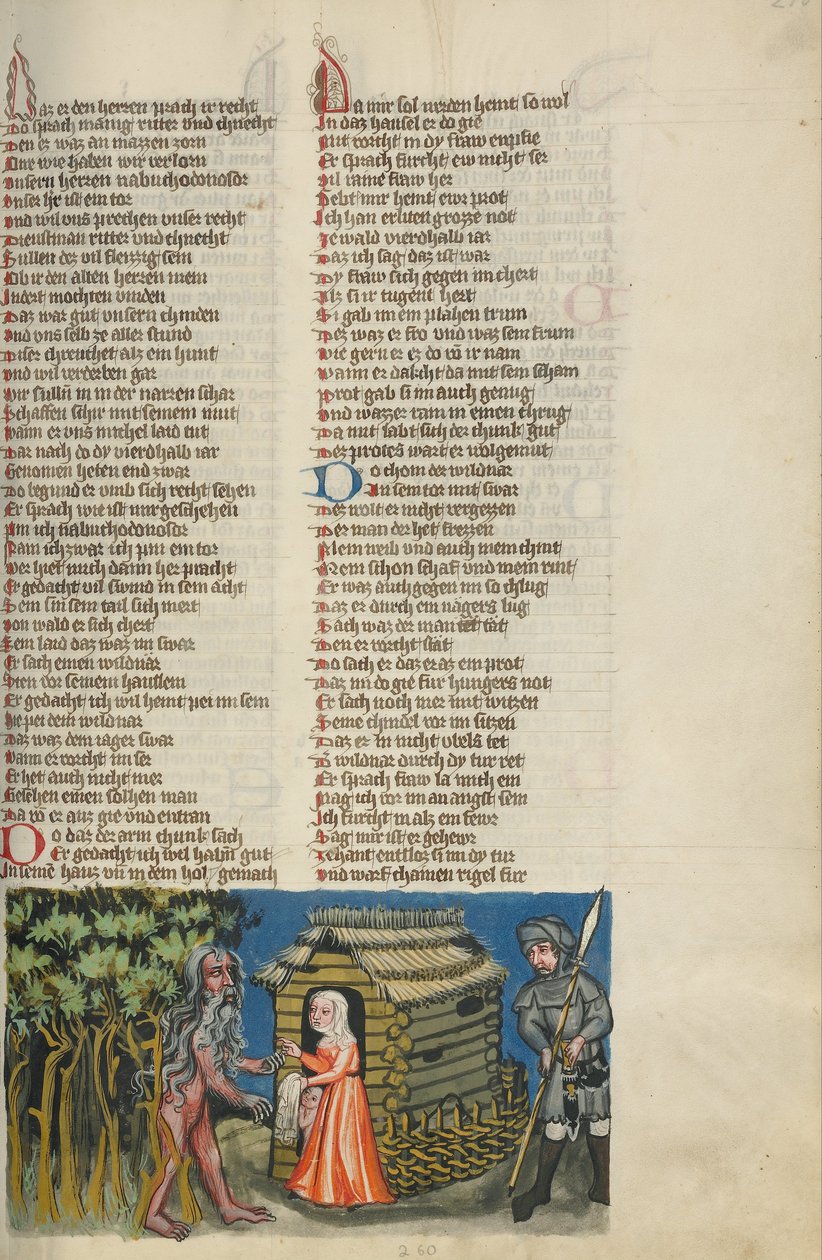 Daz er den herren prach ir recht
Do sprach manig ritter vnd chnecht
Den er waz an mazzen zorn
Owe wie haben wir verlorn
vnsern herren nabuchodonosor
vnser her ist ein tor
vnd wil vns prechen vnser recht
Dienstman ritter vnd chnecht
Sullen des vil fleizzig sein
Ob ir den alten herren mein
Indert mochten vinden
Daz war gut vnsern chinden
vnd vns selb ze aller stund
Diser chreuchet alz ein hunt
vnd wil verderben gar
wir sulln in in der narren schar
Schaffen schir mit seinem mut
wann er vns michel laid tut
Dar nach do dy vierdhalb iar
Genomen heten end zwar
Do begund er vmb sich recht sehen
Er sprach wie ist mir geschehen
Pin ich nabuchodonosor
Nain ich zwar ich pin ein tor
wer hiet mich dann her pracht
Er gedacht vil swind in sein acht
Sein sin sein tail sich mert
von wald er sich chert
Sein laid daz waz im swar
Er sach einen wildnar
Sten vor seinem hauslein
Er gedacht ich wil heint pei im sein
hie pei dem wildnar
Daz waz dem iager swar
wann er vorcht im ser
Er het auch nicht mer
Gesehen einen solhen man
Da von er auz gie vnd entran
Do daz der arm chunk sach
Er gedacht ich wel habn gut
In seinem haus vn in dem hol gemach
Da mir sol werden heint so wol
In daz hausel er do gie
Mit vorcht in dy fraw enpfie
Er sprach furcht ew nicht ser
vil raine fraw her
Gebt mir heint ewr prot
Ich han erliten grozze not
Ze wald vierdhalb iar
Daz ich sag daz ist war
Dy fraw sich gegen im chert
Als si ir tugent hert
Si gab im ein plahen trum
Dez waz er fro vnd waz sein frum
wie gern er ez do von ir nam
wann er dakcht da mit sein scham
Prot gab si im auch genug
vnd wazzer ram in einen chrug
Da mit labt sich der chunk gut
Dez protes wart er wolgemut
Do chom der wildnar
An sein tor mit swar
Des wolt er nicht vergezzen
Der man der het frezzen
Mein weib vnd auch mein chint
Mein schon schaf vnd mein rint
Er waz auch gegen im so chlug
Daz er durch ein nagers lug
Sach waz der man tet tat
Den er vorcht stat
Do sach er daz er az ein prot
Daz im do gie fur hungers not
Er sach noch mer mit witzen
Seine chindel vor im sitzen
Daz er in nicht vbels tet
Der wildnar durch dy tur ret
Er sprach fraw la mich ein
Mag ich vor im an angst sein
Ich furcht in alz ein fewr
Sag mir ist er gehewr
Zehant entsloz si im dy tur
vnd warf chainen rigel fur
260